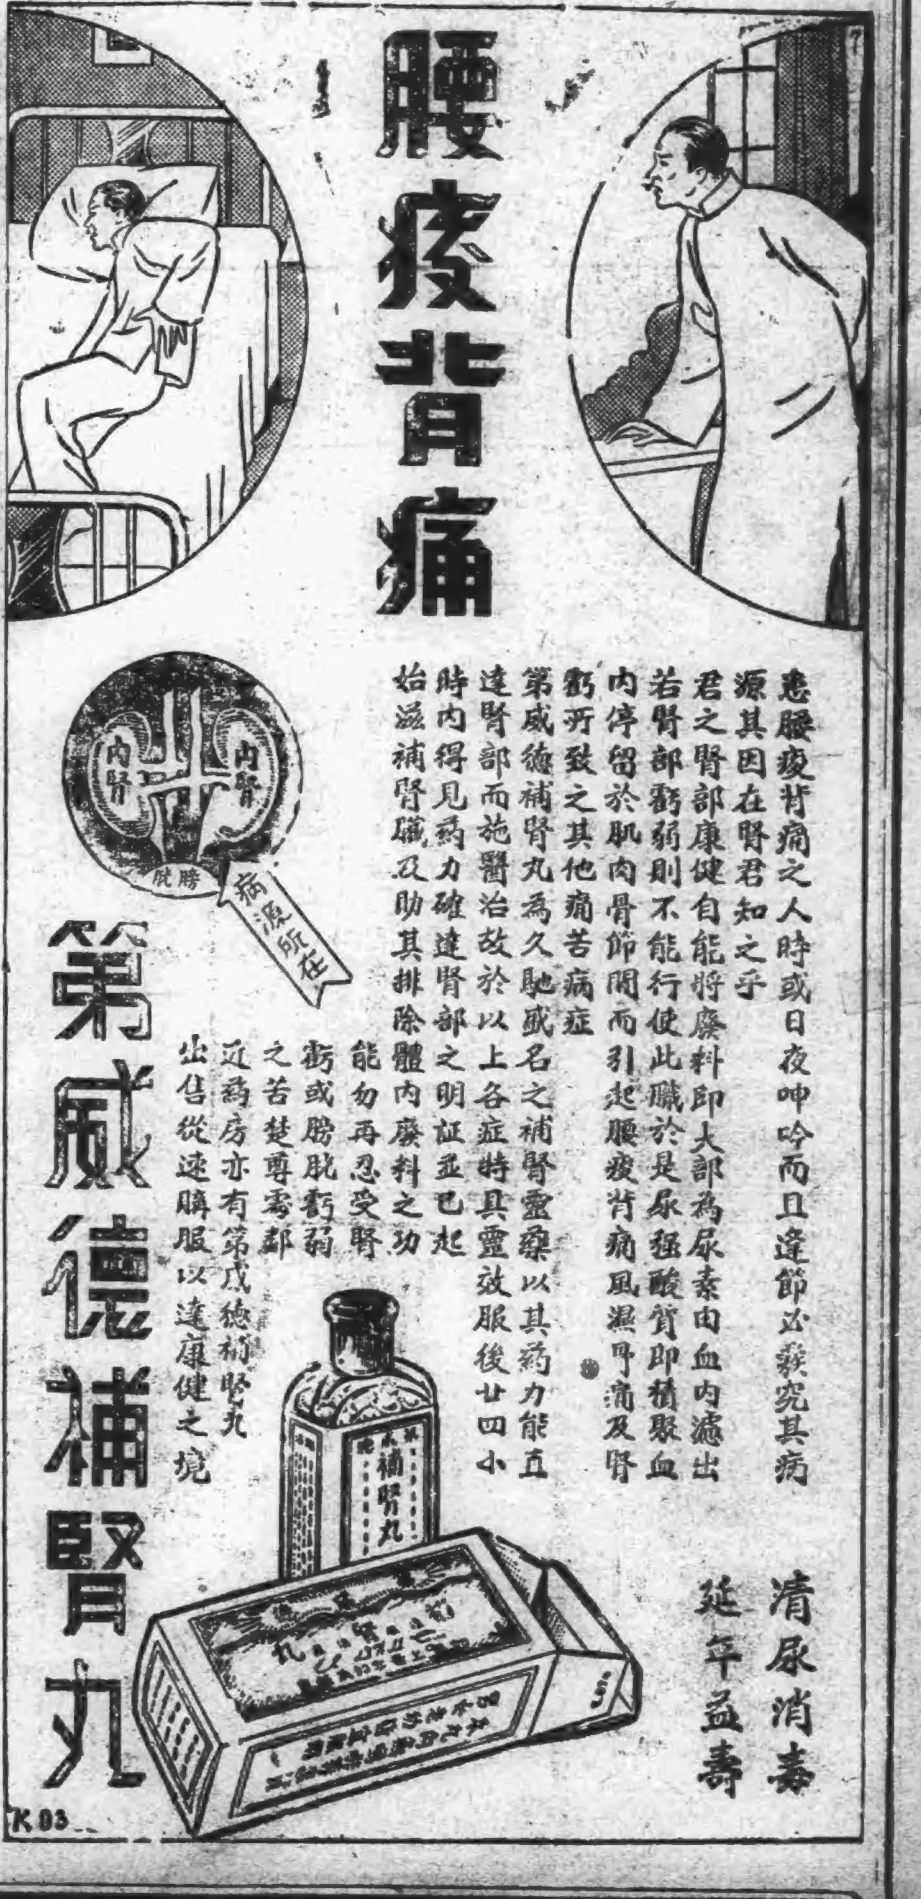 腰痠背痛
患腰痠背痛之人時或日夜呻吟而且逢節必發究其病
源其因在腎君知之乎
君之腎部康健自能將廢料即大部為尿素由血內濾出
若腎部虧弱則不能行使此職於是尿强酸質即積聚血
內停留於肌肉骨節間而引起腰痠背痛風濕骨痛及腎
虧所致之其他痛苦病症
第威德補腎丸為久馳盛名之補腎靈藥以其药力能直
達腎部而施醫治故於以上各症特具靈效服後廿四小
時內得見药力確達腎部之明証並已起
始滋補腎臟及助其排除體內廢料之功
能勿再忍受腎
虧或膀胱虧弱
之苦楚尊寓鄰
近药房亦有第威德補腎丸
出售從速購服以達康健之境
清尿消毒
延年益壽
內腎
內腎
膀胱
病源所在
第威德補腎丸
補腎丸
K 03